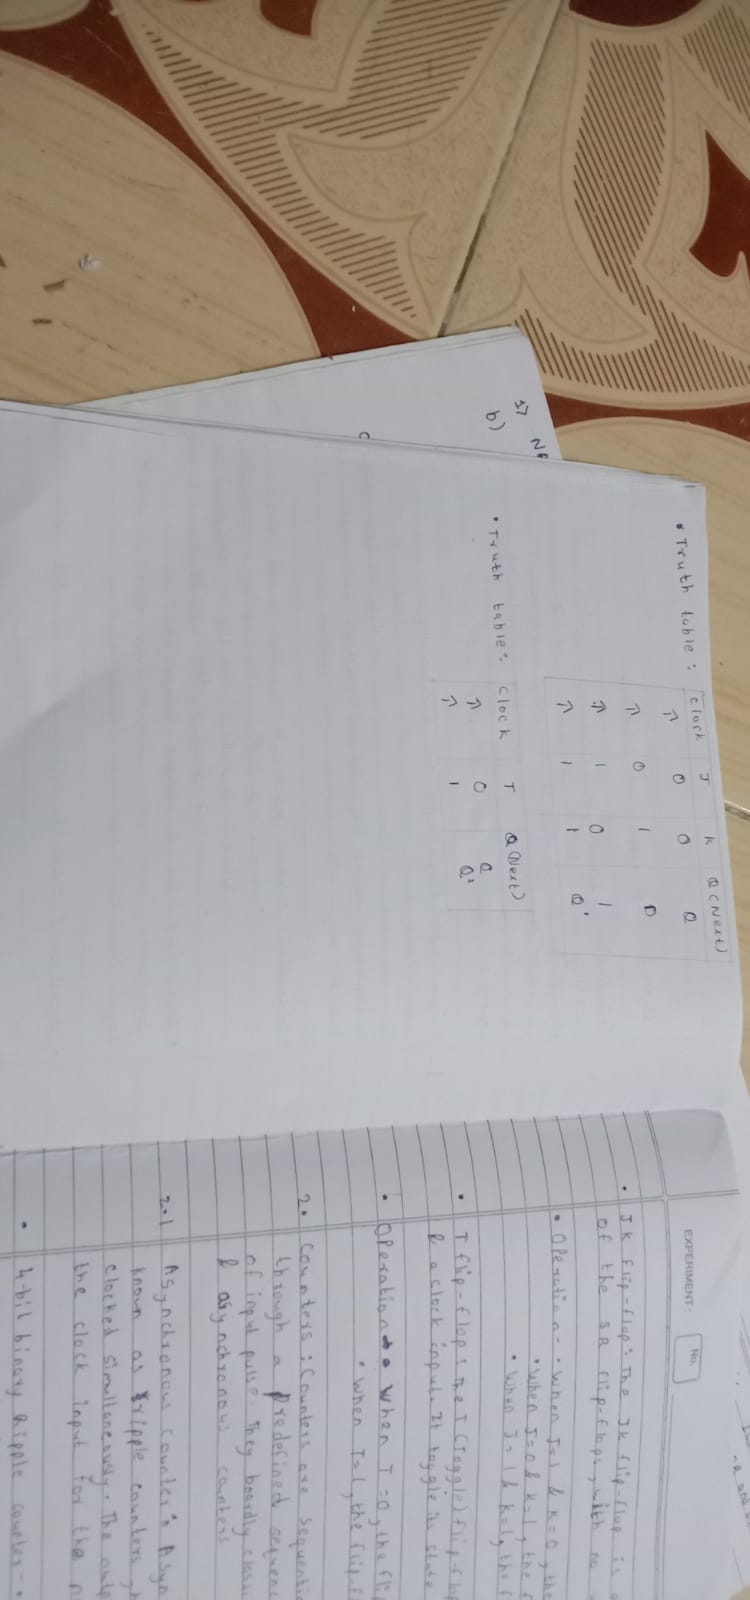 17
b)
• Truth table :
Clock J K Q (Next)
↗ 0 0 Q
↗ 0 1 0
↗ 1 0 1
↗ 1 1 Q'
• Truth table :
Clock T Q (Next)
↗ 0 Q
↗ 1 Q'
EXPERIMENT :
No.
• JK flip-flop : The JK flip-flop is
of the SR flip-flops, with no
• Operation - • When J=1 & K=0, the
• When J=0 & K=1, the
• When J=1 & K=1, the
• T flip-flop : The T (Toggle) flip-flop
& a clock input. It toggle its state
• Operation • When T=0, the
• When T=1, the flip-
2. Counters : Counters are
through a predefined
of input pulse. They boardly
& asynchronous counters
2.1 Asynchronous Counter :
known as ripple counters,
clocked simultaneously. The
the clock input for the
• 4-bit binary Ripple counter - •